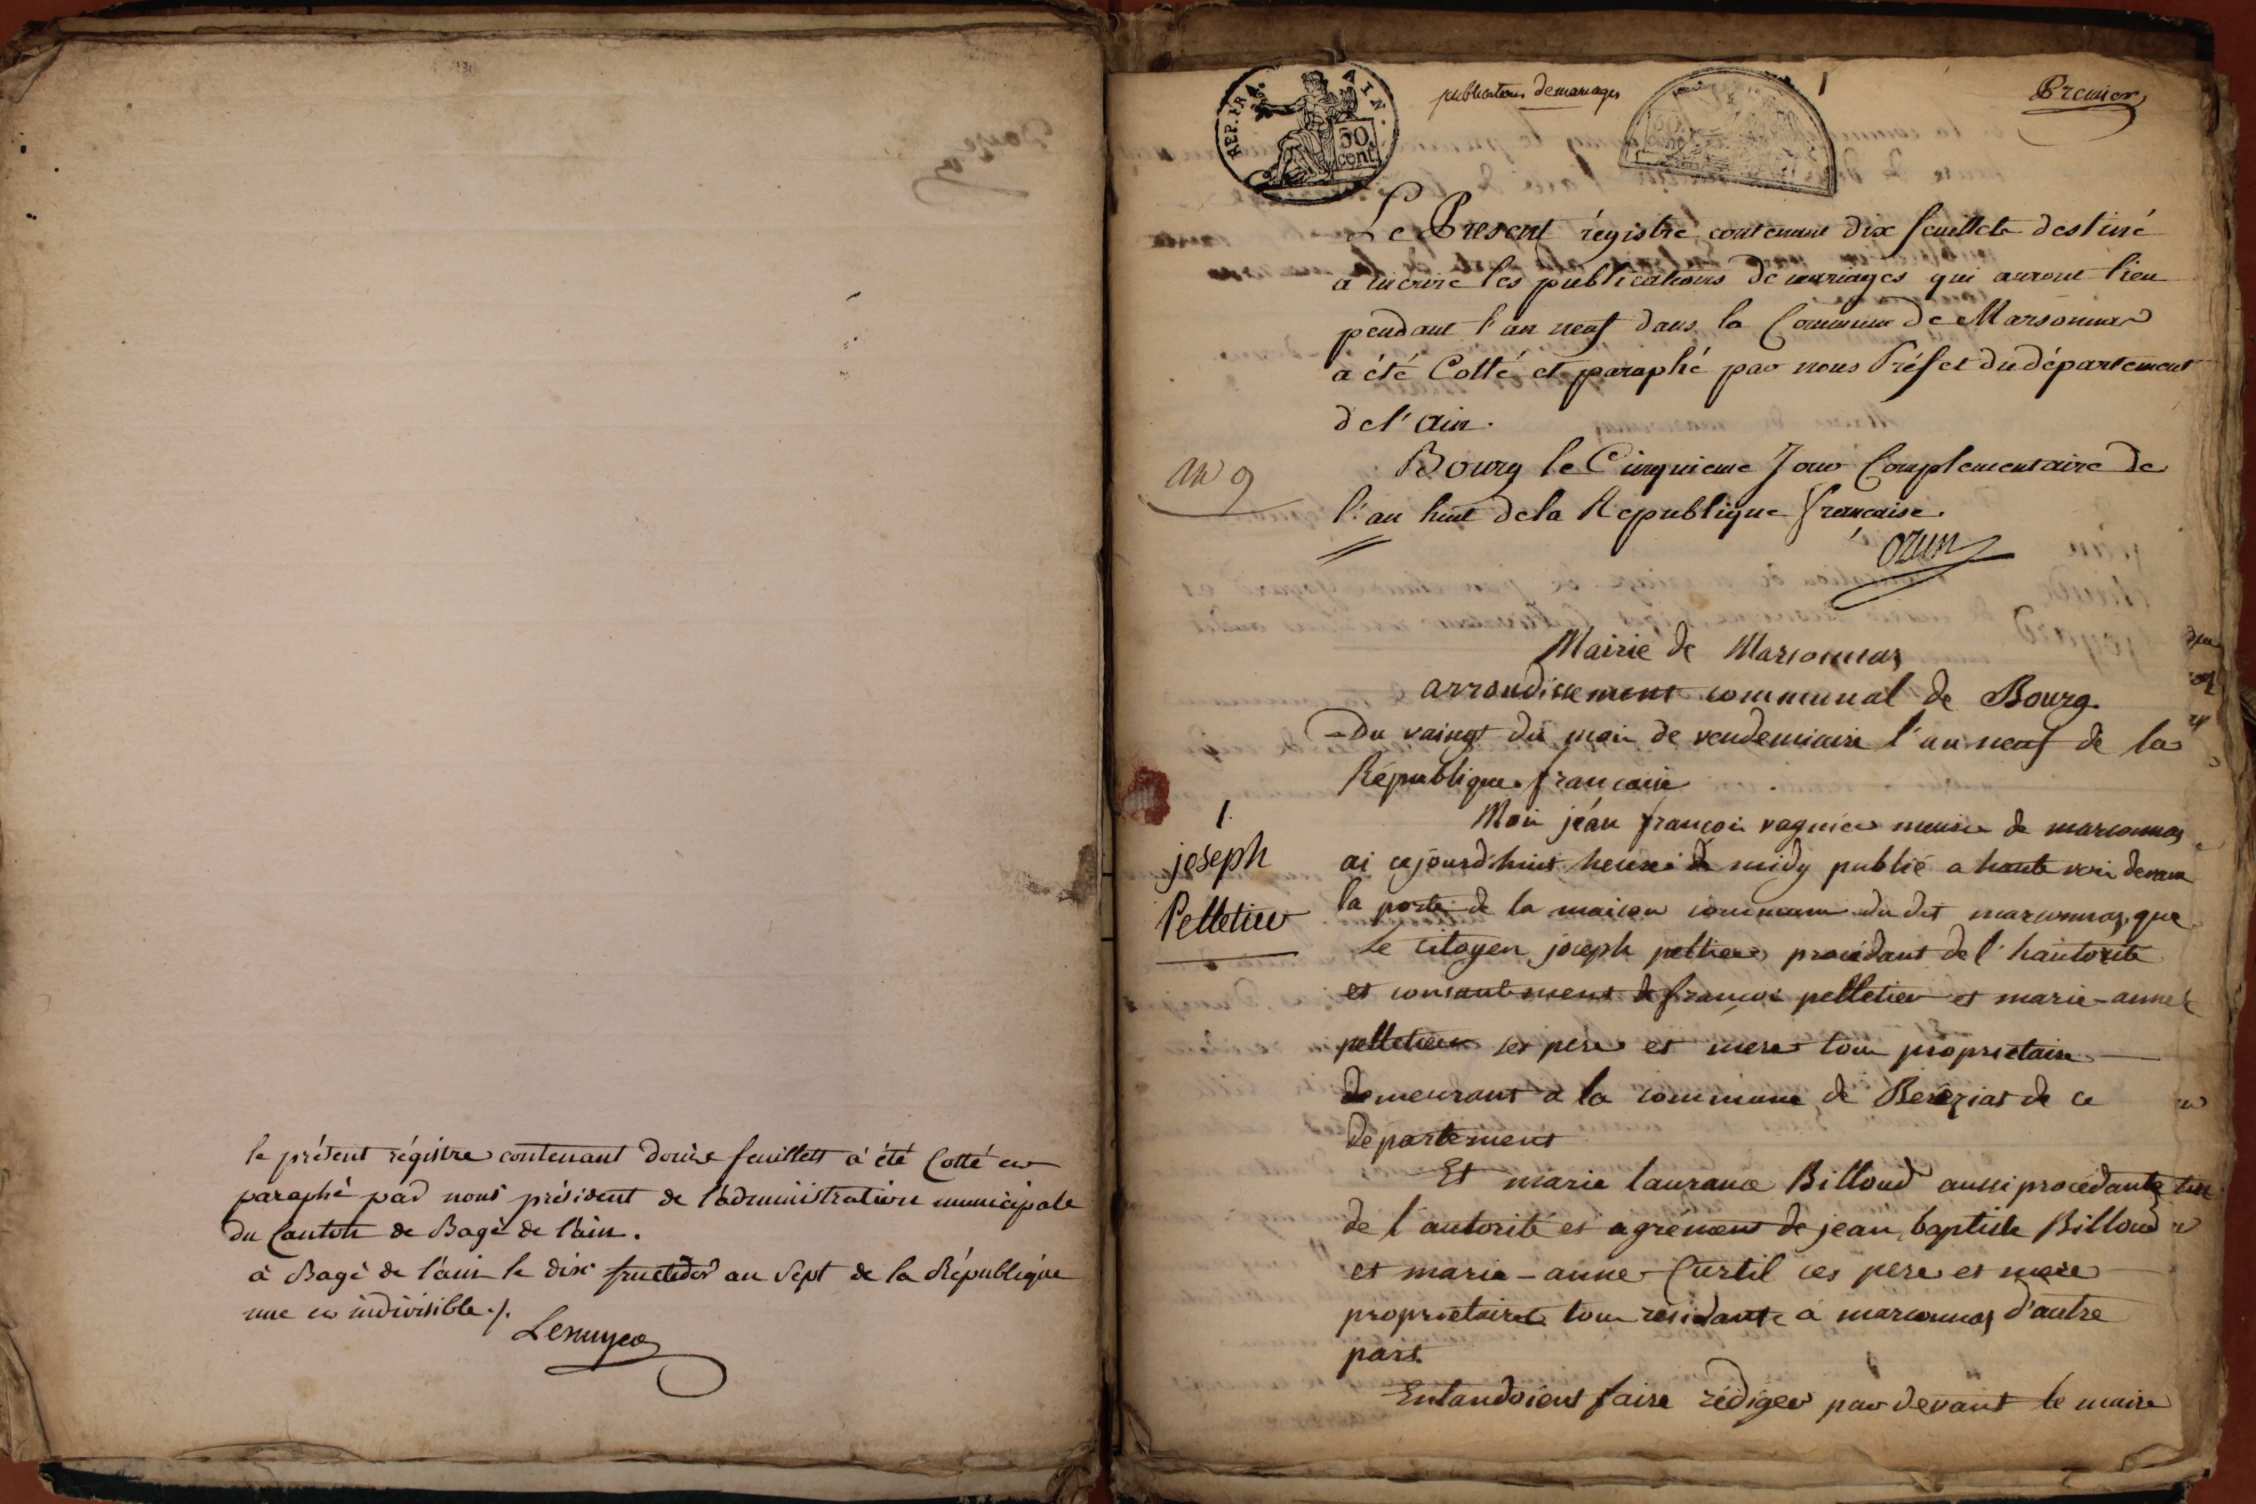 le présent régistre contenant douze feuillets à été Cotté et
paraphé par nous président de l'administration municipale
du Canton de Bagé de l'ain.
à Bagé de l'ain le dix fructidor an Sept de la République
une et indivisible ./.
REP. FRA. AIN.
50 cent
publications de mariages
1
Premier
Le Present régistre contenant dix feuillets destiné
a inscrire les publications de mariages qui auront lieu
pendant l'an neuf dans la Commune de Marsonnas
a été Cotté et paraphé par nous Préfet du département
de l'Ain.
an 9
Bourg le Cinquieme Jour Complementaire de
l'an huit de la Republique française.
ozun
Mairie de Marsonnas
arrondissement communal de Bourg.
Du vaingt du mois de vendemiaire l'an neuf de la
République francaise
1.
joseph
Pelletier
Moi jéan françois vagnier maire de marsonnas
ai cejourd'huit heure de midy publié a haute voix devant
la porte de la maison commune du dit marsonnas, que
Le citoyen joseph peltier procédant de l'hautorité
et consantement de françois pelletier et marie-anne
pelletier ses pere et mere tous propriétaire
demeurant a la commune de Bereziat de ce
departement
Et marie laurance Billoud aussi procedante
de l'autorité et agrément de jean baptiste Billoud
et marie-anne Curtil ces pere et mere
proprietaires tous résidants a marsonnas d'autre
part.
Entandoient faire rédiger par devant le maire